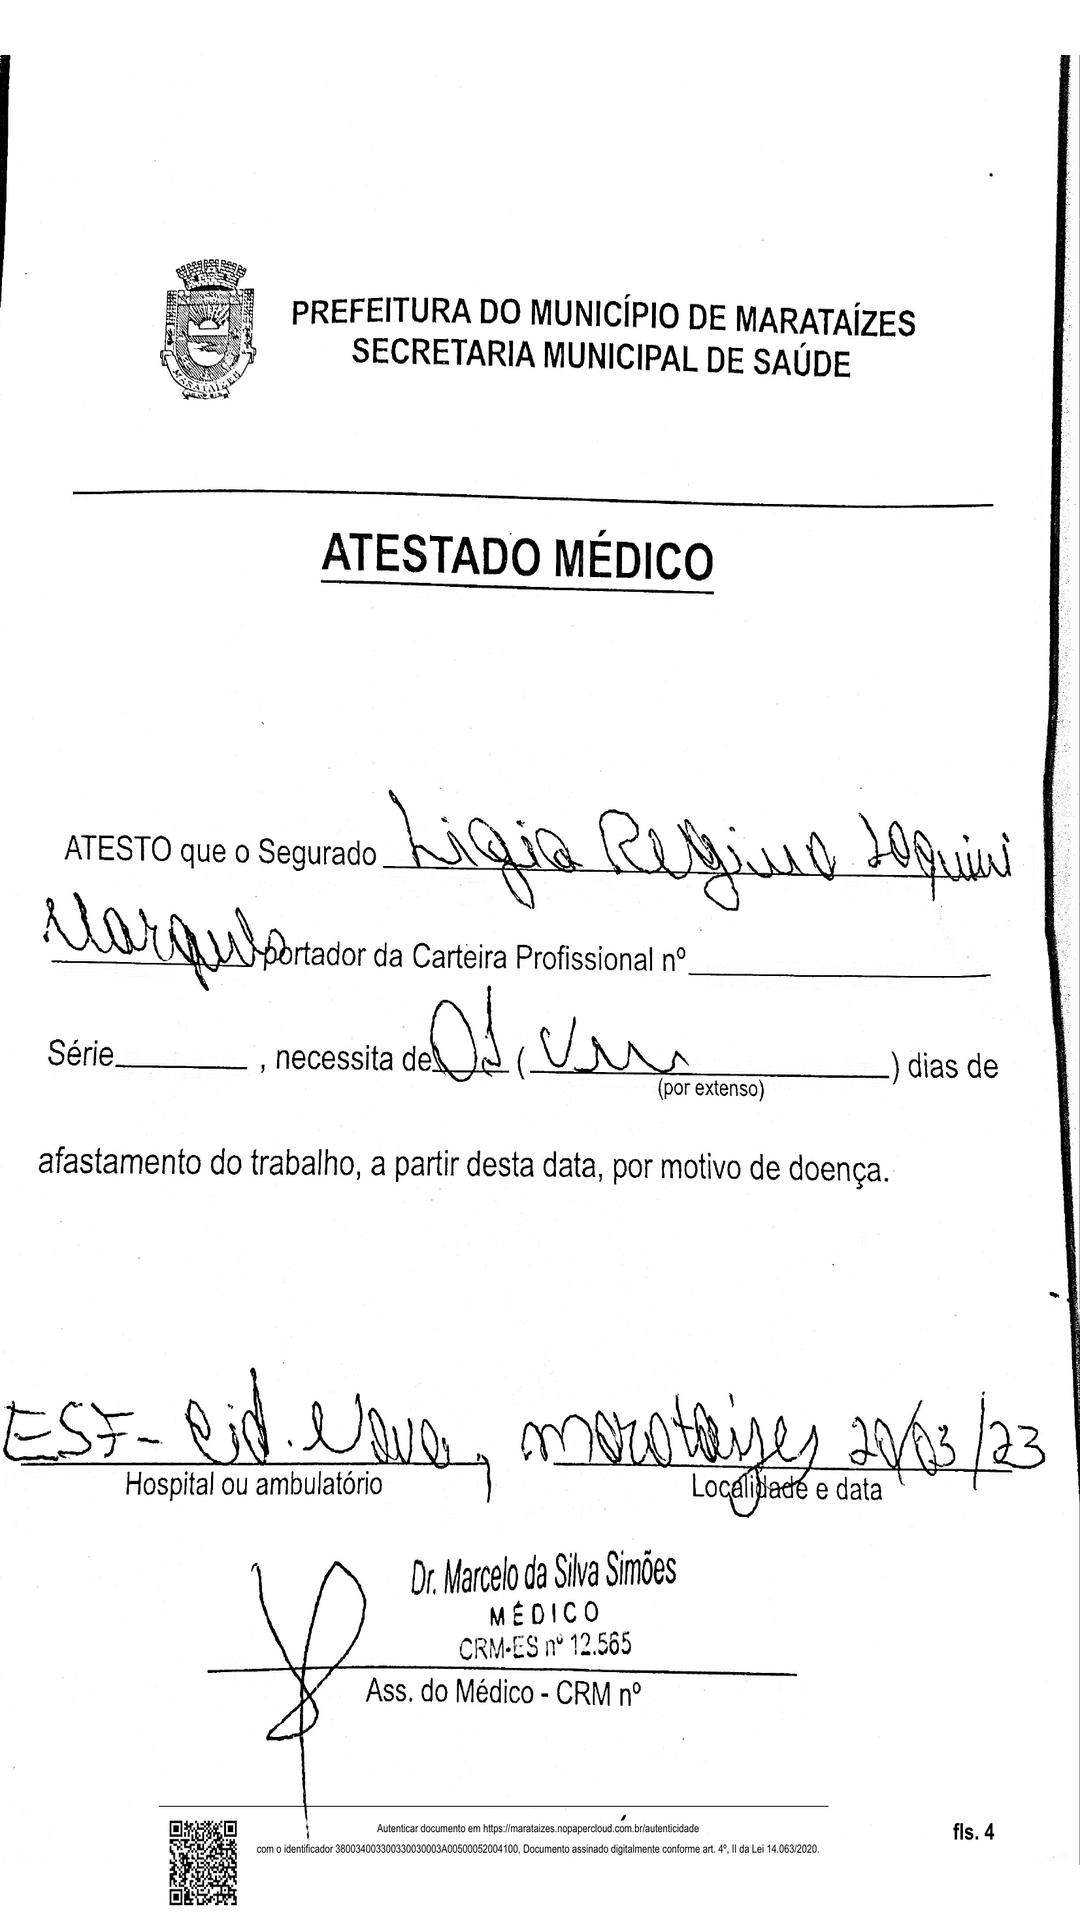 PREFEITURA DO MUNICÍPIO DE MARATAÍZES
SECRETARIA MUNICIPAL DE SAÚDE
MARATAÍZES
ATESTADO MÉDICO
ATESTO que o Segurado Ligia Regina
Marques portador da Carteira Profissional nº
Série , necessita de 01 ( um ) dias de
(por extenso)
afastamento do trabalho, a partir desta data, por motivo de doença.
ESF- Cid. Nova, Marataizes 20/03/23
Hospital ou ambulatório Localidade e data
Dr. Marcelo da Silva Simões
MÉDICO
CRM-ES nº 12.565
Ass. do Médico - CRM nº
Autenticar documento em https://marataizes.nopapercloud.com.br/autenticidade
com o identificador 380034003300330030003A00500052004100, Documento assinado digitalmente conforme art. 4º, II da Lei 14.063/2020.
fls. 4